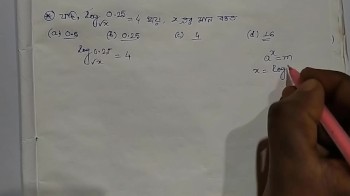 ⊛ যদি, log√x 0.25 = 4 হয়, x এর মান কত?
(a) 0.5 (b) 0.25 (c) 4 (d) 16
log√x 0.25 = 4
a^x = m
x = log